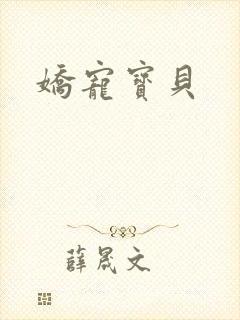 嬌寵寶貝
薛晟文